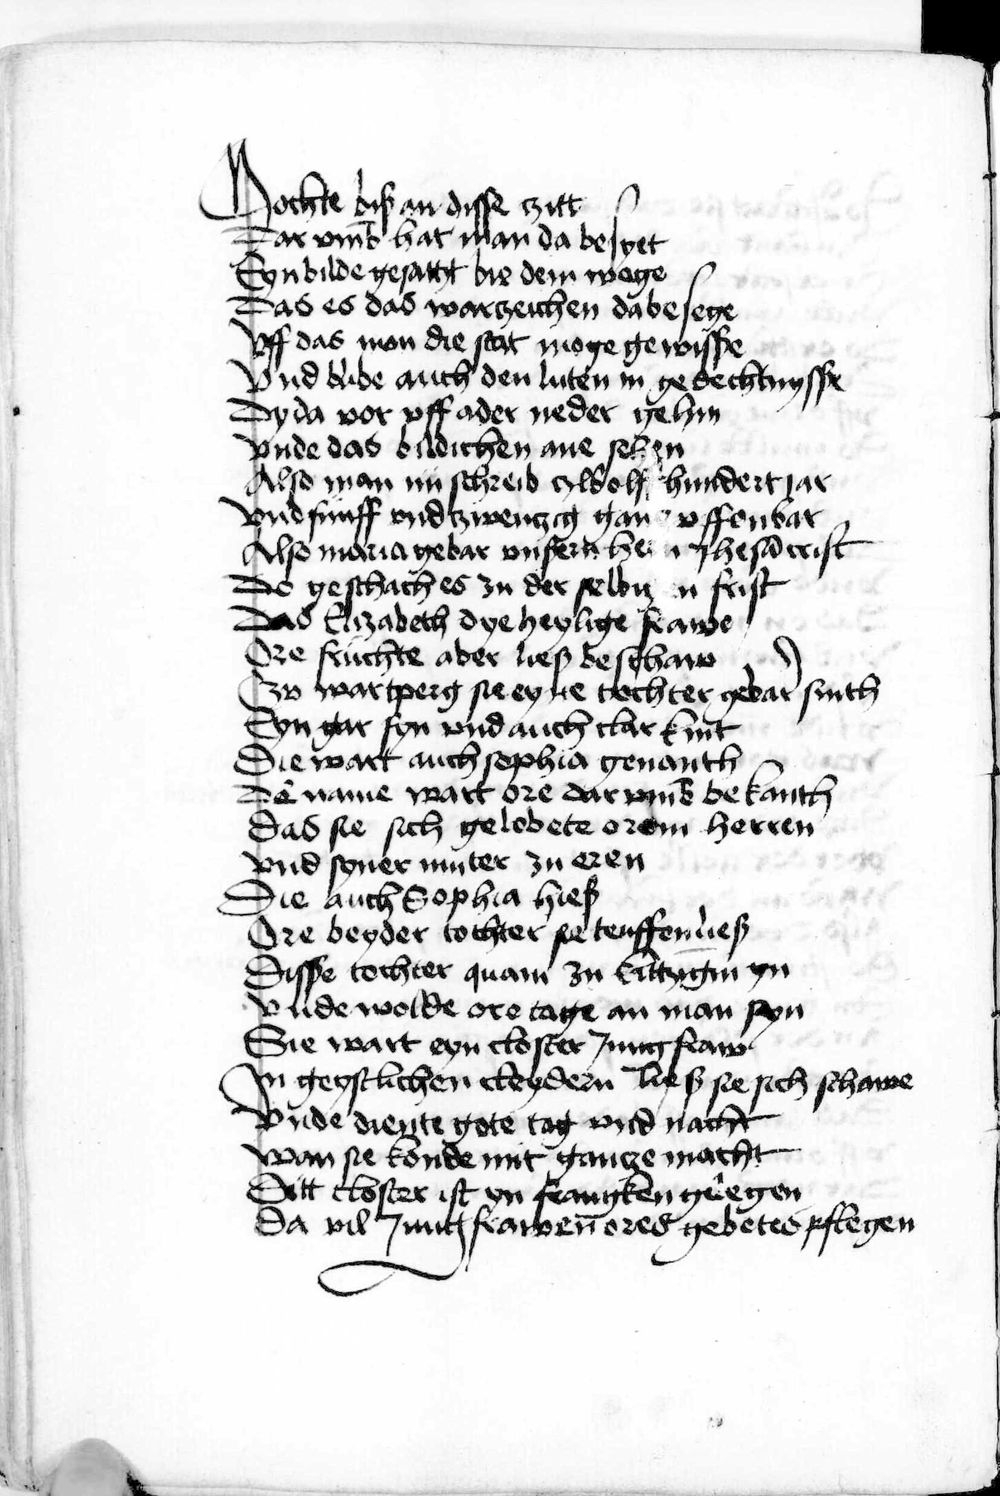 Mochte biß an disse zitt
Dar vmb hat man da besyet
Eyn bilde gesatzt bie dem wege
Das es das warzeichen da besege
Vff das mon die stat moge gewisße
Vnd blibe auch den luten in gedechtnysße
Dy da vor vff ader neder gehin
Vnde das bildichen ane sehen
Also man nu schreib zwolf hundert jar
Vnd funff vnd zwenczig gancz vffenbar
Also maria gebar vnsern hern Jhesu crist
Do geschach es zu der selbigen frist
Das Elizabeth dye heylige frawe
Ore fruchte aber ließ beschaw
Zu wartperg sie eyne tochter gebar sinth
Eyn gar fyn vnd auch clar kint
Die wart auch sophia genanth
Der name wart ore dar vmb bekanth
Das sie sich gelobete orem herren
Vnd syner muter zu eren
Die auch Sophia hieß
Ore beyder tochter sie teuffen ließ
Disse tochter quam zu kitzzingin yn
Vnde wolde ore tage an man syn
Sie wart eyn closter Jungfraw
In geystlichen cleydern ließ sie sich schawe
Vnde diente gote tag vnd nacht
Wan sie konde mit gantze macht
Ditt closter ist yn frangken gelegen
Da vil Jungfrawen ores gebetes pflegen